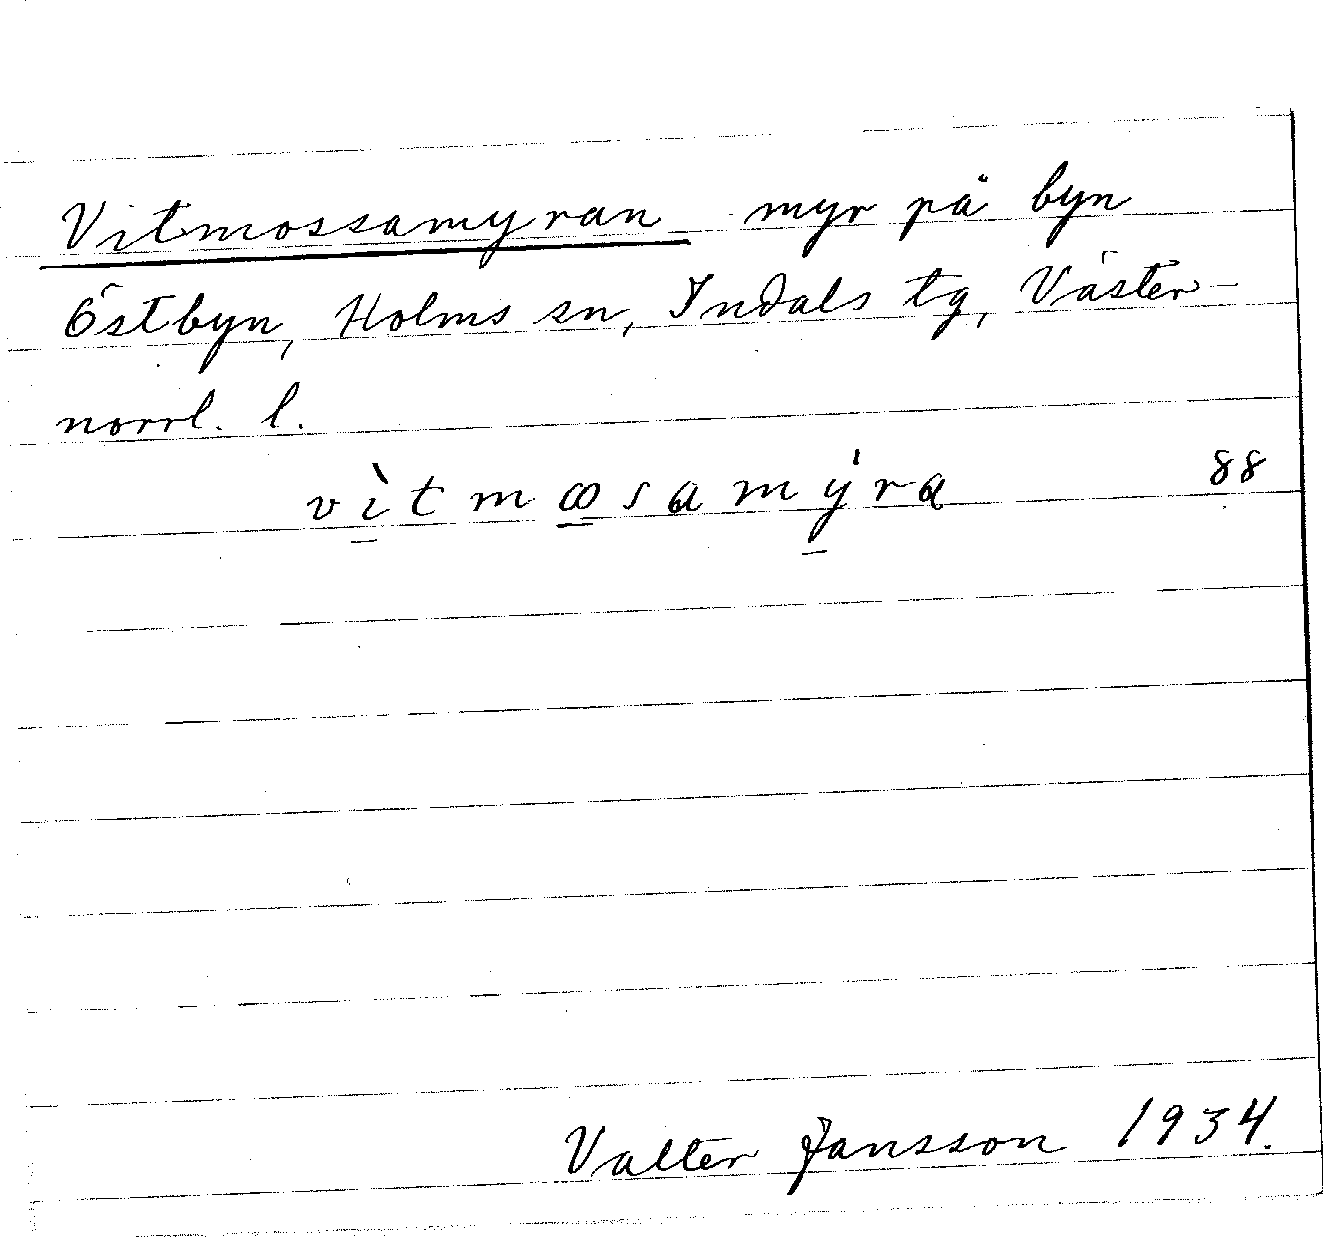 Vitmossamyran myr på byn
Östbyn, Holms sn, Indals tg, Väster-
norrl. l.
vìtmꝏsamýra 88
Valter Jansson 1934.